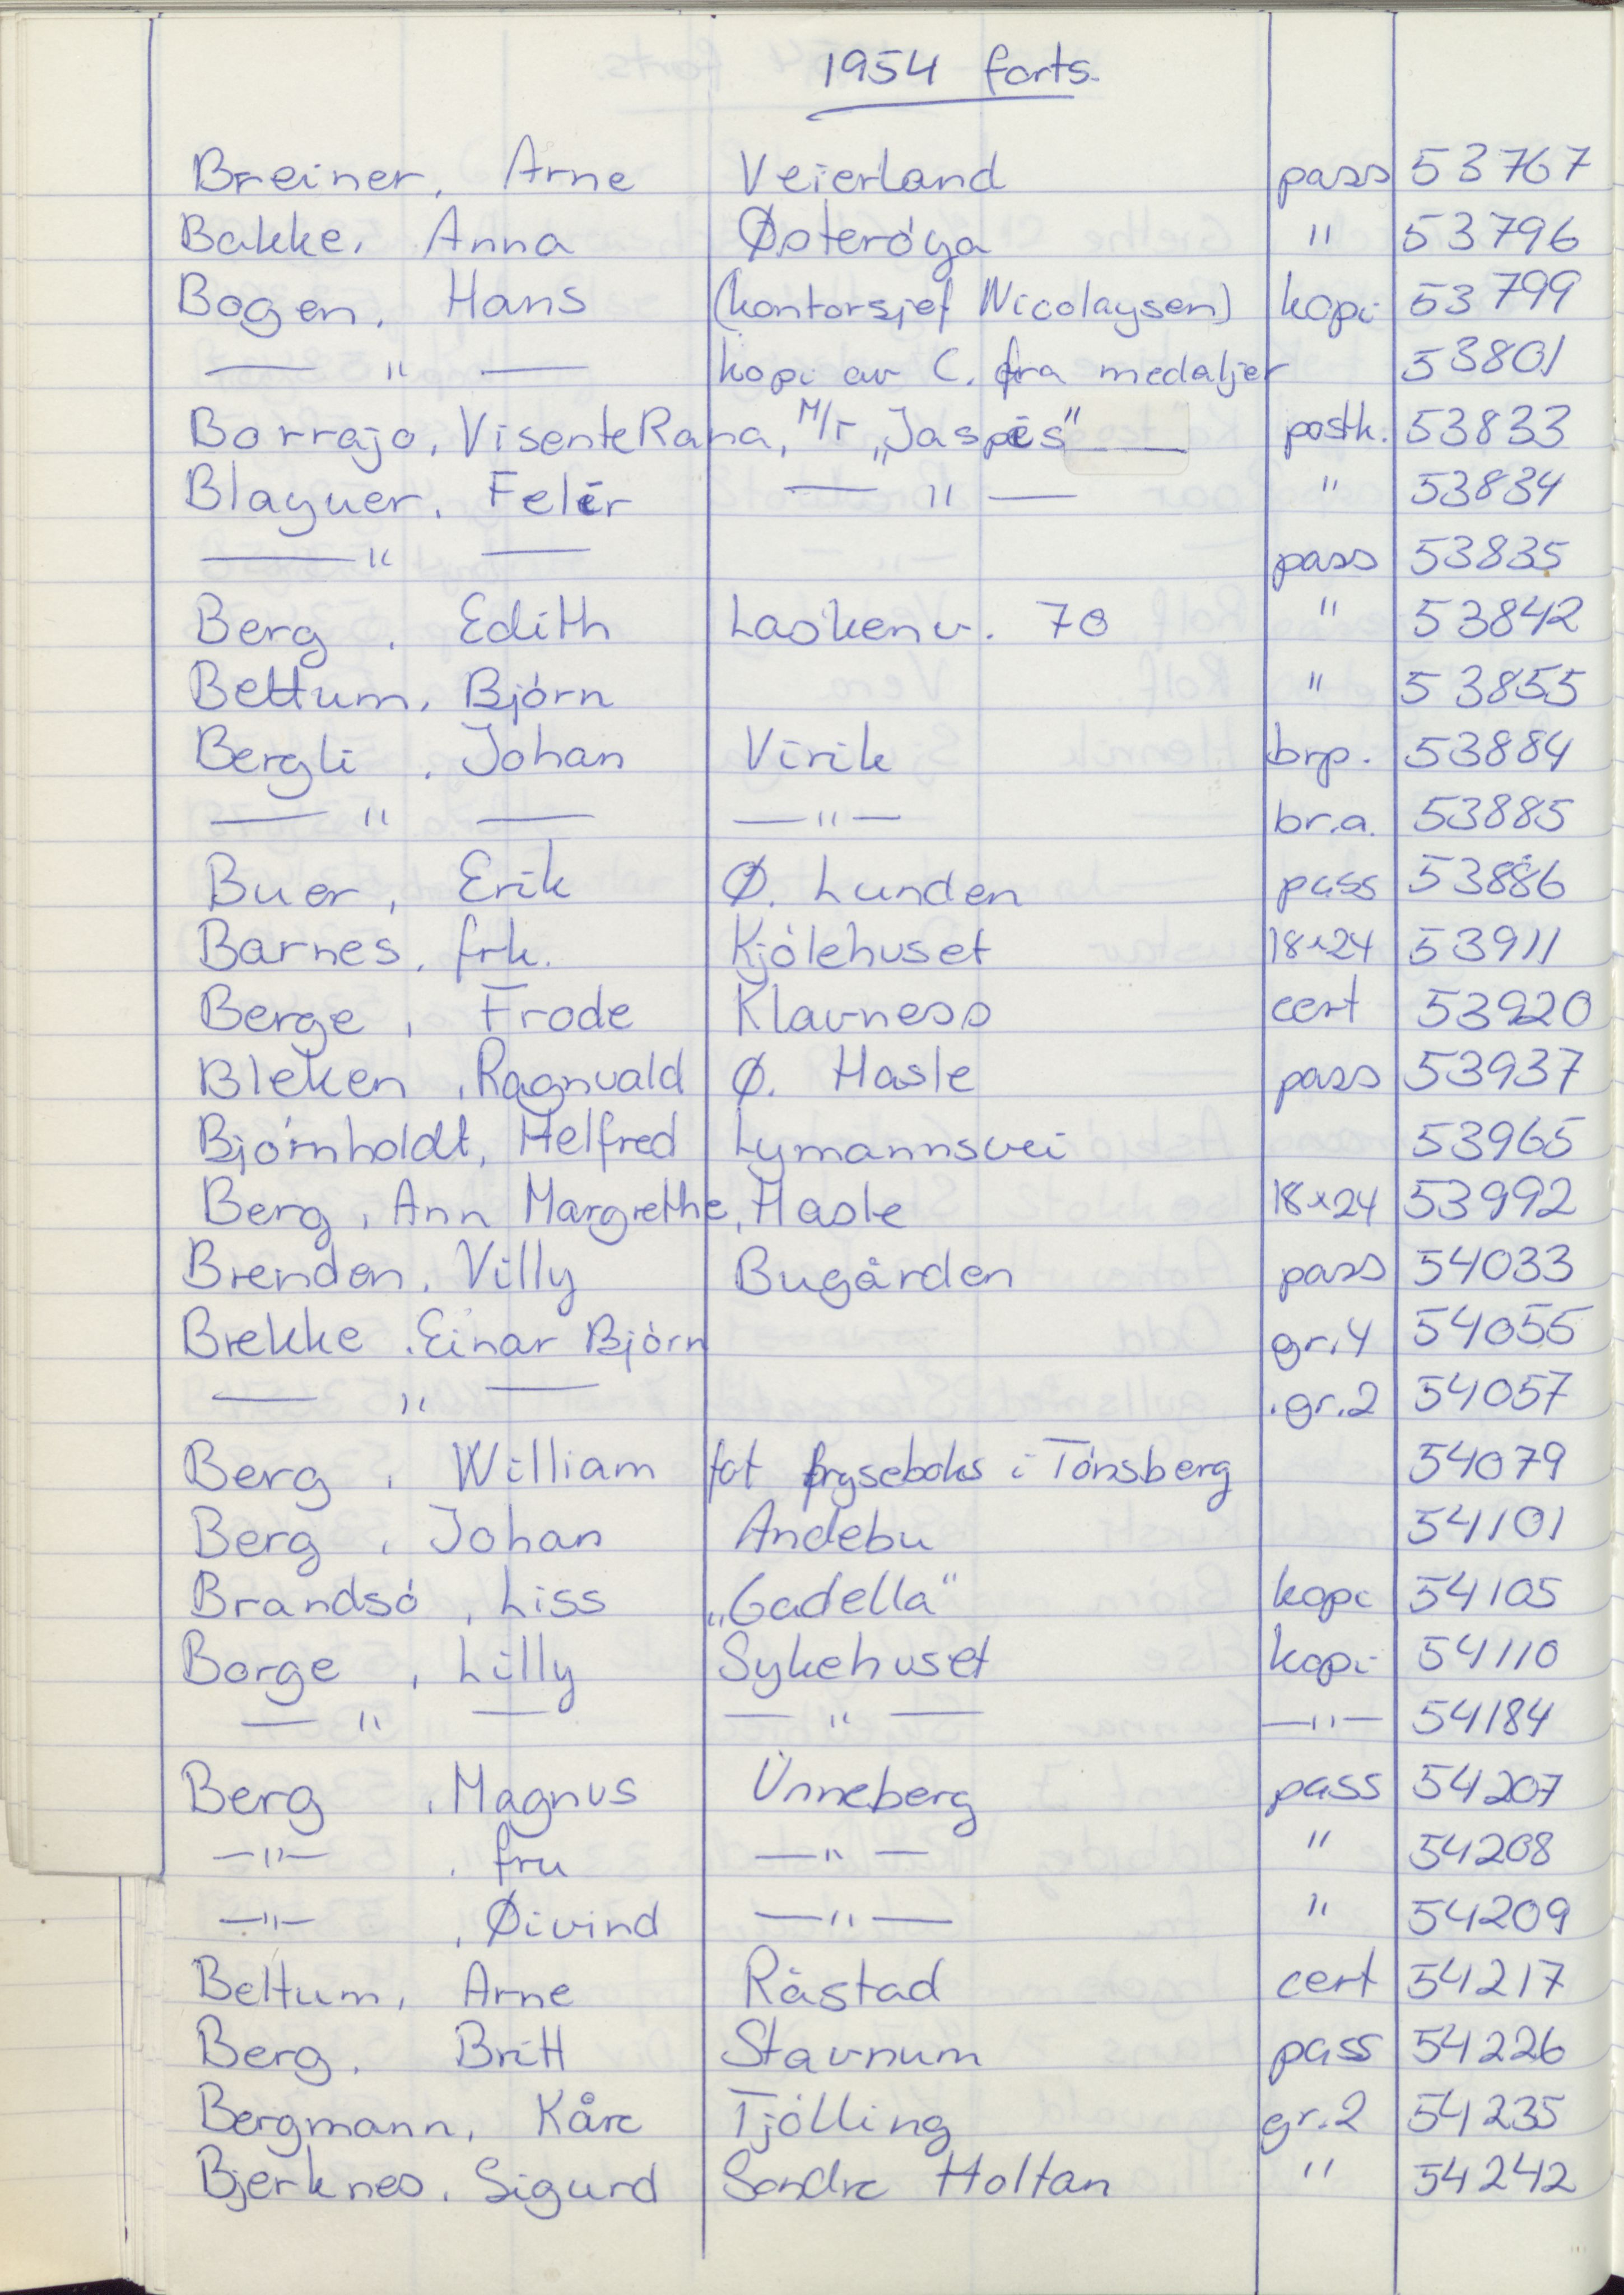 1954 forts.
Breiner, Arne Veierland pass 53767
Bakke, Anna Østerøya " 53796
Bogen, Hans (kontorsjef Nicolaysen) kopi 53799
— " — kopi av C. fra medaljer 53801
Borrajo, Visente Rana, M/T „Jaspis" — postk. 53833
Blayuer, Felér — " — " 53834
— " — pass 53835
Berg, Edith Laskenv. 70 " 53842
Bettum, Bjørn " 53855
Bergli, Johan Virik brp. 53884
— " — — " — br.a. 53885
Buer, Erik Ø. Lunden pass 53886
Barnes, frk. Kjølehuset 18x24 53911
Berge, Frode Klavness cert 53920
Bleken, Ragnvald Ø. Hasle pass 53937
Bjørnholdt, Helfred Lymannsvei 53965
Berg, Ann Margrethe, Hasle 18x24 53992
Brenden, Villy Bugården pass 54033
Brekke, Einar Bjørn gr.4 54055
— " — gr.2 54057
Berg, William fat fryseboks i Tønsberg 54079
Berg, Johan Andebu 54101
Brandsø, Liss „Gadella" kopi 54105
Borge, Lilly Sykehuset kopi 54110
— " — — " — — " — 54184
Berg, Magnus Unneberg pass 54207
— " — , fru — " — " 54208
— " — , Øivind — " — " 54209
Bettum, Arne Råstad cert 54217
Berg, Britt Stavnum pass 54226
Bergmann, Kåre Tjølling gr.2 54235
Bjerknes, Sigurd Søndre Holtan " 54242